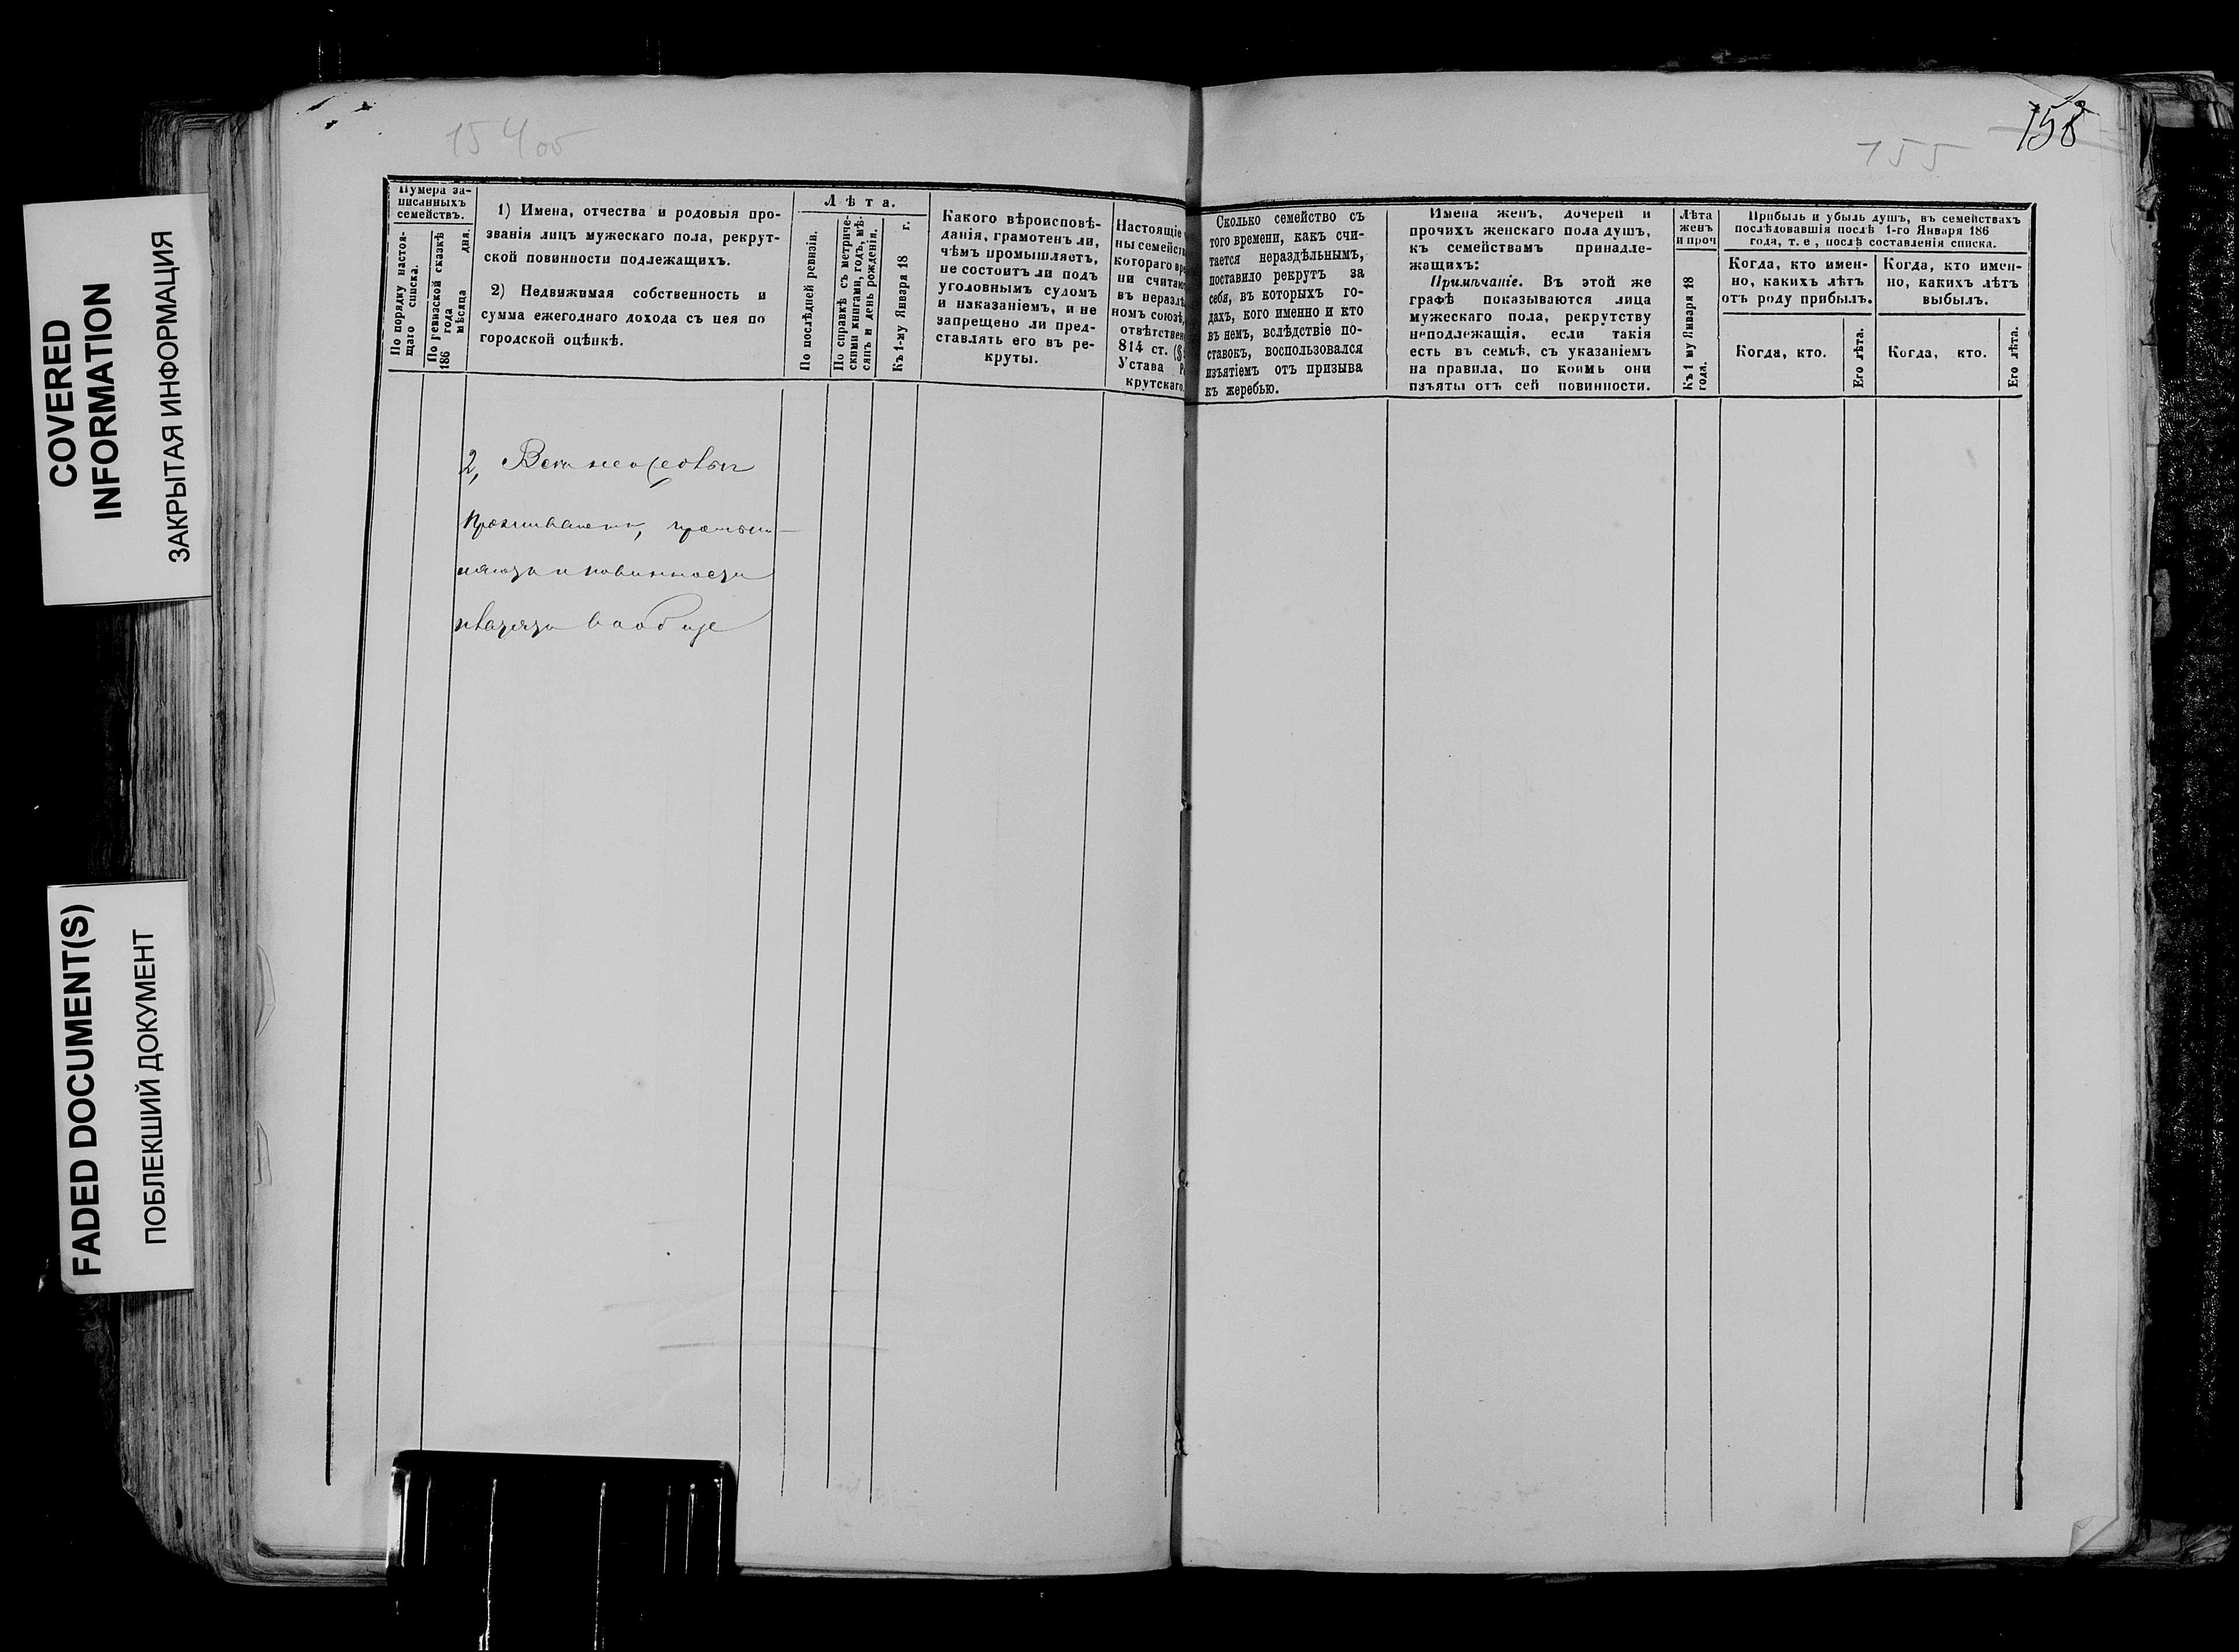 COVERED
INFORMATION
ЗАКРЫТАЯ ИНФОРМАЦИЯ
FADED DOCUMENT(S)
ПОБЛЕКШИЙ ДОКУМЕНТ
154об
Нумера за-
писанныхъ
семействъ.
По порядку настоя-
щаго списка.
По ревизской сказкѣ
186 года мѣсяца дня.
1) Имена, отчества и родовыя про-
званія лицъ мужескаго пола, рекрут-
ской повинности подлежащихъ.
2) Недвижимая собственность и
сумма ежегоднаго дохода съ нея по
городской оцѣнкѣ.
Лѣта.
По послѣдней ревизіи.
По справкѣ съ метриче-
скими книгами, годъ, мѣ-
сяцъ и день рожденія.
Къ 1-му Января 18 г.
Какого вѣроисповѣ-
данія, грамотенъ ли,
чѣмъ промышляетъ,
не состоитъ ли подъ
уголовнымъ судомъ
и наказаніемъ, и не
запрещено ли пред-
ставлять его въ ре-
круты.
Настоящіе
ны семейств
котораго вре
ни считаю
въ неразлѣ
номъ союзѣ,
отвѣтствен
814 ст. (§
Устава Р
крутскаго.
2,
промыш-
повинности
вообще
158
155
Сколько семейство съ
того времени, какъ счи-
тается нераздѣльнымъ,
поставило рекрутъ за
себя, въ которыхъ го-
дахъ, кого именно и кто
въ немъ, вслѣдствіе по-
ставокъ, воспользовался
изъятіемъ отъ призыва
къ жеребью.
Имена женъ, дочерей и
прочихъ женскаго пола душъ,
къ семействамъ принадле-
жащихъ:
Примѣчаніе. Въ этой же
графѣ показываются лица
мужескаго пола, рекрутству
неподлежащія, если такія
есть въ семьѣ, съ указаніемъ
на правила, по коимъ они
изъяты отъ сей повинности.
Лѣта
женъ
и проч
Къ 1 му Января 18
года.
Прибыль и убыль душъ, въ семействахъ
послѣдовавшія послѣ 1-го Января 186
года, т. е, послѣ составленія списка.
Когда, кто имен-
но, какихъ лѣтъ
отъ роду прибылъ.
Когда, кто.
Его лѣта.
Когда, кто имен-
но, какихъ лѣтъ
выбылъ.
Когда, кто.
Его лѣта.